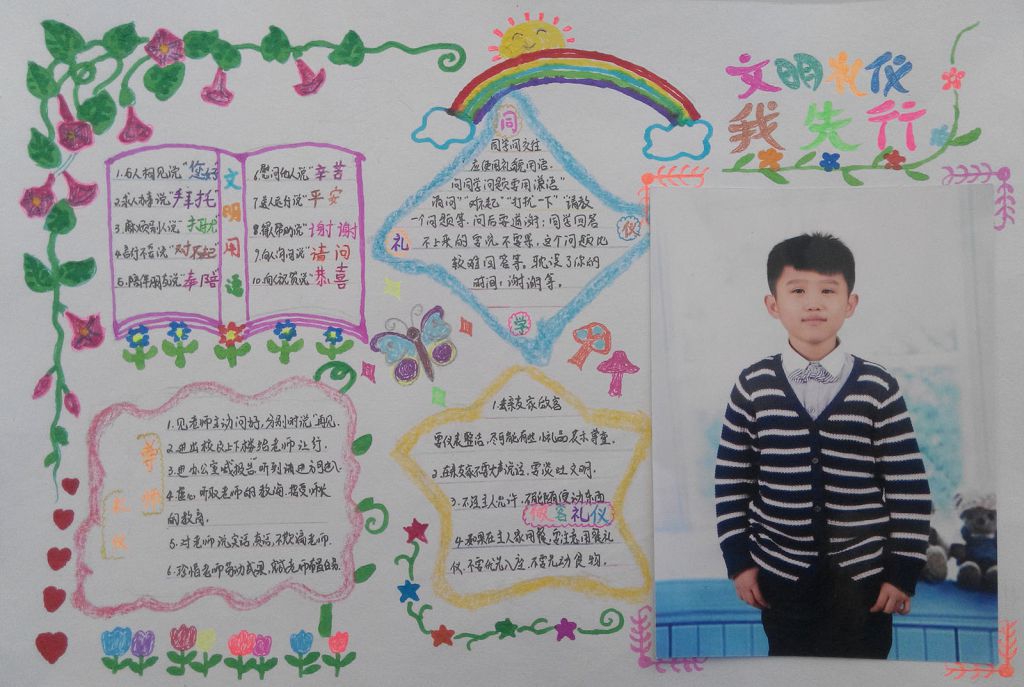 文明礼仪
我先行
文明用语
1.与人相见说“您好”
2.求人办事说“拜托”
3.麻烦别人说“打扰”
4.言行不妥说“对不起”
5.陪伴朋友说“奉陪”
6.慰问他人说“辛苦”
7.送人远行说“平安”
8.得人帮助说“谢谢”
9.向人询问说“请问”
10.向人祝贺说“恭喜”
同学礼仪
同学间交往
应使用礼貌用语.
问同学问题要用滚语”
“请问”“对不起”“打扰一下”“请教
一个问题等.问后要道谢；同学回答
不上来的要说不要紧,这个问题比
较难回答等。耽误了你的
时间；谢谢等。
尊师礼仪
1.见老师主动问好,分别时说“再见.
2.进出校或上下楼给老师让行.
3.进办公室喊报告”听到请进方可进入
4.虚心听取老师的教诲,接受师长
的教育.
5.对老师说实话真话,不欺骗老师.
6.珍惜老师劳动成果,
做客礼仪
1.去亲友家做客
要仪表整洁,尽可能有些小礼品表示尊重.
2.在亲友家不要大声说话,要谈吐文明.
3.不经主人允许.不能随便动东西
4.如果在主人家用餐,要注意用餐礼
仪.不要优先入座.不要先动食物.